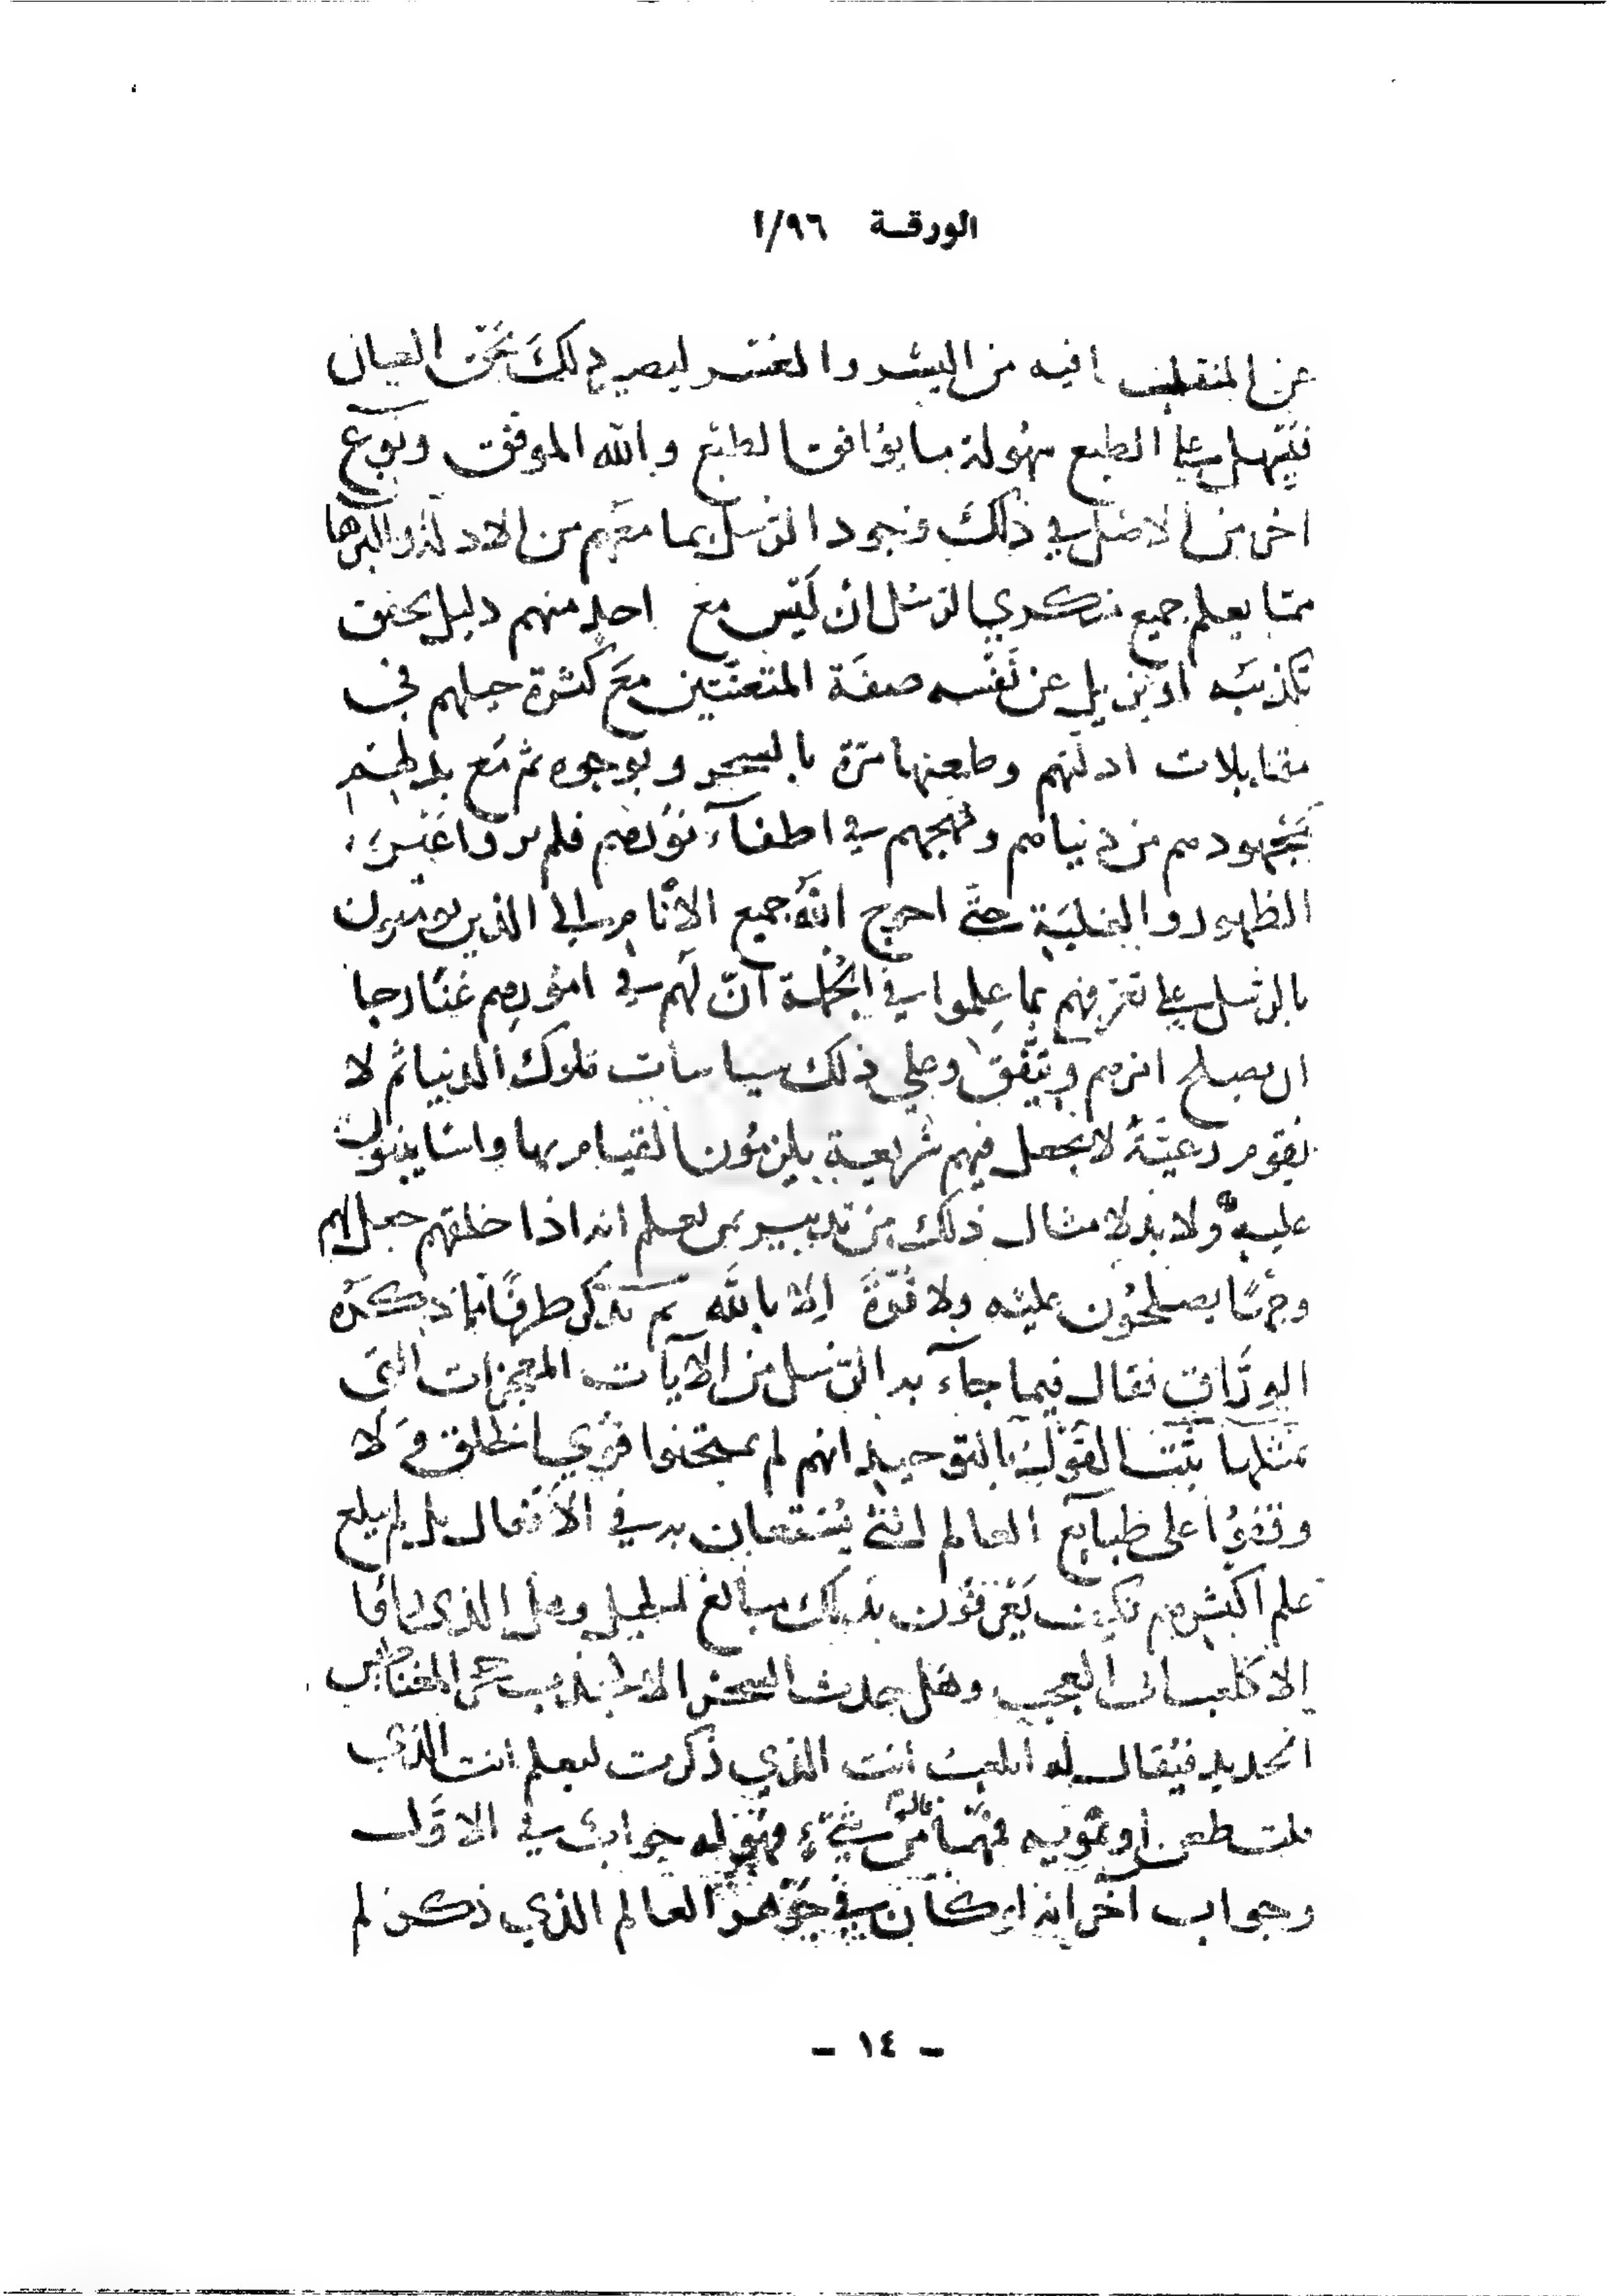 الورقة ٩٦/١
عن المنقلب فيه من اليسر والعسر ليصير ذلك نحن العيان
فيسهل على الطبع سهولة ما يوافق الطبع والله الموفق ونوع
اخر من الاصل في ذلك وجود الرسل بما معهم من الادلة والبرها
مما يعلم جميع منكري الرسل ان ليس مع احد منهم دليل يحقق
تكذيبه او يزيل عن نفسه صفة المتعنتين مع كثرة حيلهم في
مقابلات ادلتهم وطعنها مرة بالسحر وبوجوه ثم مع بذلهم
مجهودهم من دنياهم ومهجهم في اطفآء نورهم فلم يروا غير
الظهور والغلبة حتى احوج الله جميع الانام الى الذين يومنون
بالرسل على تفرقهم بما علموا في الجملة ان لهم في امورهم غنا رجا
ان يصلح امرهم ويتفق وعلى ذلك سياسات ملوك الدنيا ثم لا
تقوم رعية لا يجعل فيهم شريعة يلزمون القيام بها واسا يبنون
عليه ولا بد لامثال ذلك من تدبير من يعلم انه اذا خلقهم جعل لهم
وجها يصلحون عليه ولا قوة الا بالله ثم نذكر طرفا مما ذكره
الوراق فقال فيما جآء به الرسل من الآيات المعجزات التي
بمثلها يثبت القول بالتوحيد انهم لم يمتحنوا قوي الخلق ولا
وقفوا على طبايع العالم التي يستعان به في الافعال بل لم يبلغ
علم اكثرهم فكيف يعرفون بذلك مبالغ الحيل وهل الذي
الا كلعبات العجب وهل حدث السحر الا لجذب حجر المغناطيس
الحديد فيقال له ابلغت انت الذي ذكرت ليعلم انت الذي
قلت طعن او تمويه فمهما قال من شيء فهو له جواب في الاول
وجواب آخر انه لو كان في جوهر العالم الذي ذكر لم
- ١٤ -